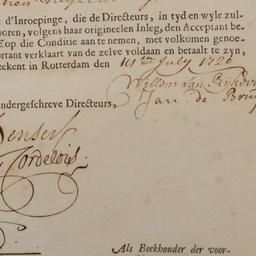 d'Inroepinge, die de Directeurs, in tyd en wyle zul-
ooren, volgens haar origineelen Inleg, den Acceptant be-
op die Conditie aan te nemen, met volkomen genoe-
ortant verklaart van de zelve voldaan en betaalt te zyn,
eekent in Rotterdam den July 1720
Willem van
ndergeschreve Directeurs, Jan. de.
Als Boekhouder der voor-